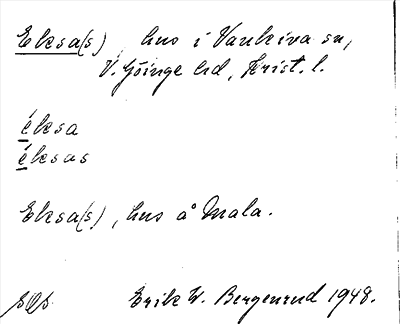 Eksa(s), hus i Vankiva sn,
V. Göinge hd, Krist. l.
éksa
éksas
Eksa(s), hus å Mala.
Erik W. Bergenrud 1948.